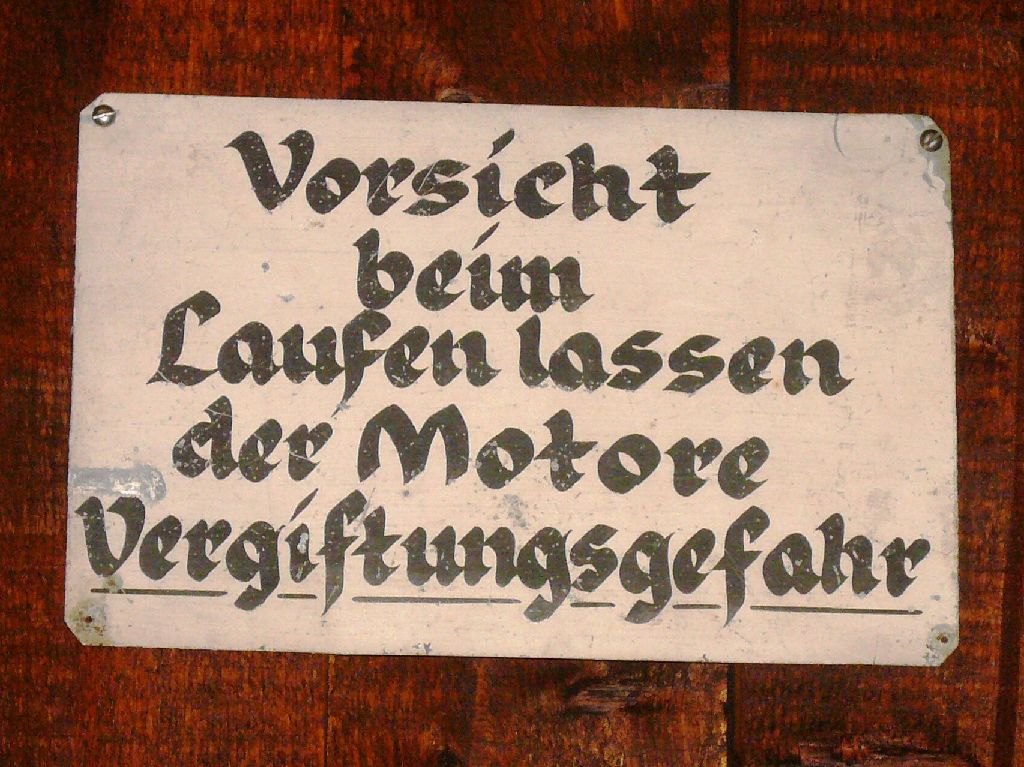 Vorsicht
beim
Laufen lassen
der Motore
Vergiftungsgefahr